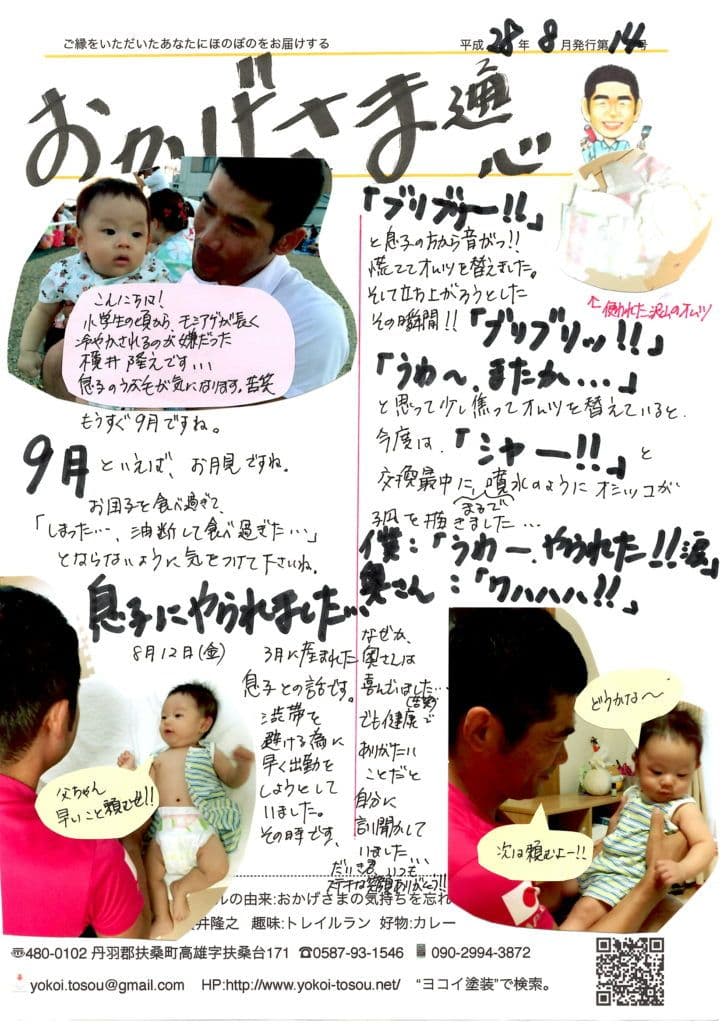 ご縁をいただいたあなたにほのぼのをお届けする
平成28年8月発行第14号
おかげさま通心
こんにちは!
小学生の頃から、モミアゲが長く
冷やかされるのが嫌だった
横井隆之です...
息子のうぶ毛が気になります。苦笑
もうすぐ9月ですね。
9月といえば、お月見ですね。
お団子を食べ過ぎて、
「しまった…、油断して食べ過ぎた…」
とならないように気をつけて下さいね。
息子にやられました...
8月12日(金)
3月に産まれた
息子との話です。
渋滞を
避ける為に
早く出勤を
しようとして
いました。
その時です、
父ちゃん
早いこと頼むぜ!!
「ブリブリー!!」
と息子の方から音がっ!!
慌ててオムツを替えました。
そして立ち上がろうとした
その瞬間!!「ブリブリッ!!」
↑使われた沢山のオムツ
「うわ〜、またか...」
と思って少し焦ってオムツを替えていると、
今度は、「シャー!!」と
交換最中に、まるで噴水のようにオシッコが
弧を描きました...
僕:「うわー、やられた!!涙」
奥さん:「ワハハハ!!」
なぜか、
奥さんは
喜んでいました...
(苦笑)
でも健康で
ありがたい
ことだと
自分に
言い聞かして
いました...
だいき君、いつも
ステキな笑顔ありがとう!!
どうかな〜
次は頼むよー!!
ルの由来:おかげさまの気持ちを忘れ
井隆之 趣味:トレイルラン 好物:カレー
〒480-0102 丹羽郡扶桑町高雄字扶桑台171 ☎0587-93-1546 090-2994-3872
yokoi.tosou@gmail.com HP:http://www.yokoi-tosou.net/ “ヨコイ塗装”で検索。